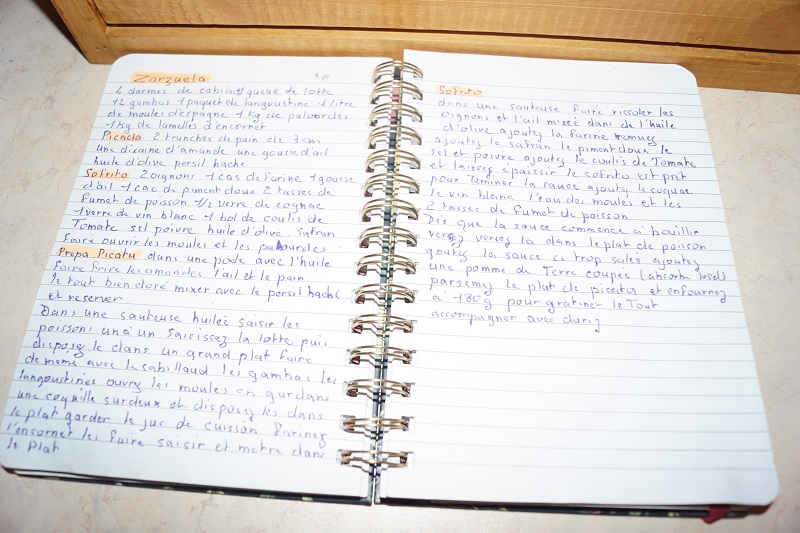 Zarzuela 4p
4 darmes de cabillaud queue de lotte
12 gambas 1 paquet de langoustine 1 litre
de moules d'espagne 1 kg de palourdes
1 kg de lamelles d'encornet
Picada 2 tranches de pain de 3cm
une dizaine d'amande une gousse d'ail
huile d'olive persil haché
Sofrito 2 oignons 1 cas de farine 1 gousse
d'ail 1 cac de piment doux 2 tasses de
fumet de poisson 1/2 verre de cognac
1 verre de vin blanc 1 bol de coulis de
Tomate sel poivre huile d'olive safran
faire ouvrir les moules et les palourdes
Prépa Picata dans une poele avec l'huile
faire frire les amandes l'ail et le pain
le tout bien doré mixer avec le persil haché
et reserver
Dans une sauteuse huilée saisir les
poissons un à un saisissez la lotte puis
disposez le dans un grand plat faire
de meme avec le cabillaud les gambas les
langoustines ouvrez les moules en gardans
une coquille sur deux et disposez les dans
le plat garder le jus de cuisson farinez
l'encornet les faire saisir et metre dans
le plat
Sofrito
dans une sauteuse faire rissoler les
oignons et l'ail mixée dans de l'huile
d'olive ajoutez la farine remuez
ajoutez le safran le piment doux le
sel et poivre ajoutez le coulis de Tomate
et laissez épaissir le sofrito est pret
pour Terminer la sauce ajoutez le cognac
le vin blanc l'eau des moules et les
2 tasses de fumet de poisson
Dès que la sauce commence a bouillir
versez versez la dans le plat de poisson
goutez la sauce si trop salée ajoutez
une pomme de Terre coupée (absorbe lesel)
parsemez le plat de picata et enfournez
à 180g pour gratiner le Tout
accompagner avec du riz